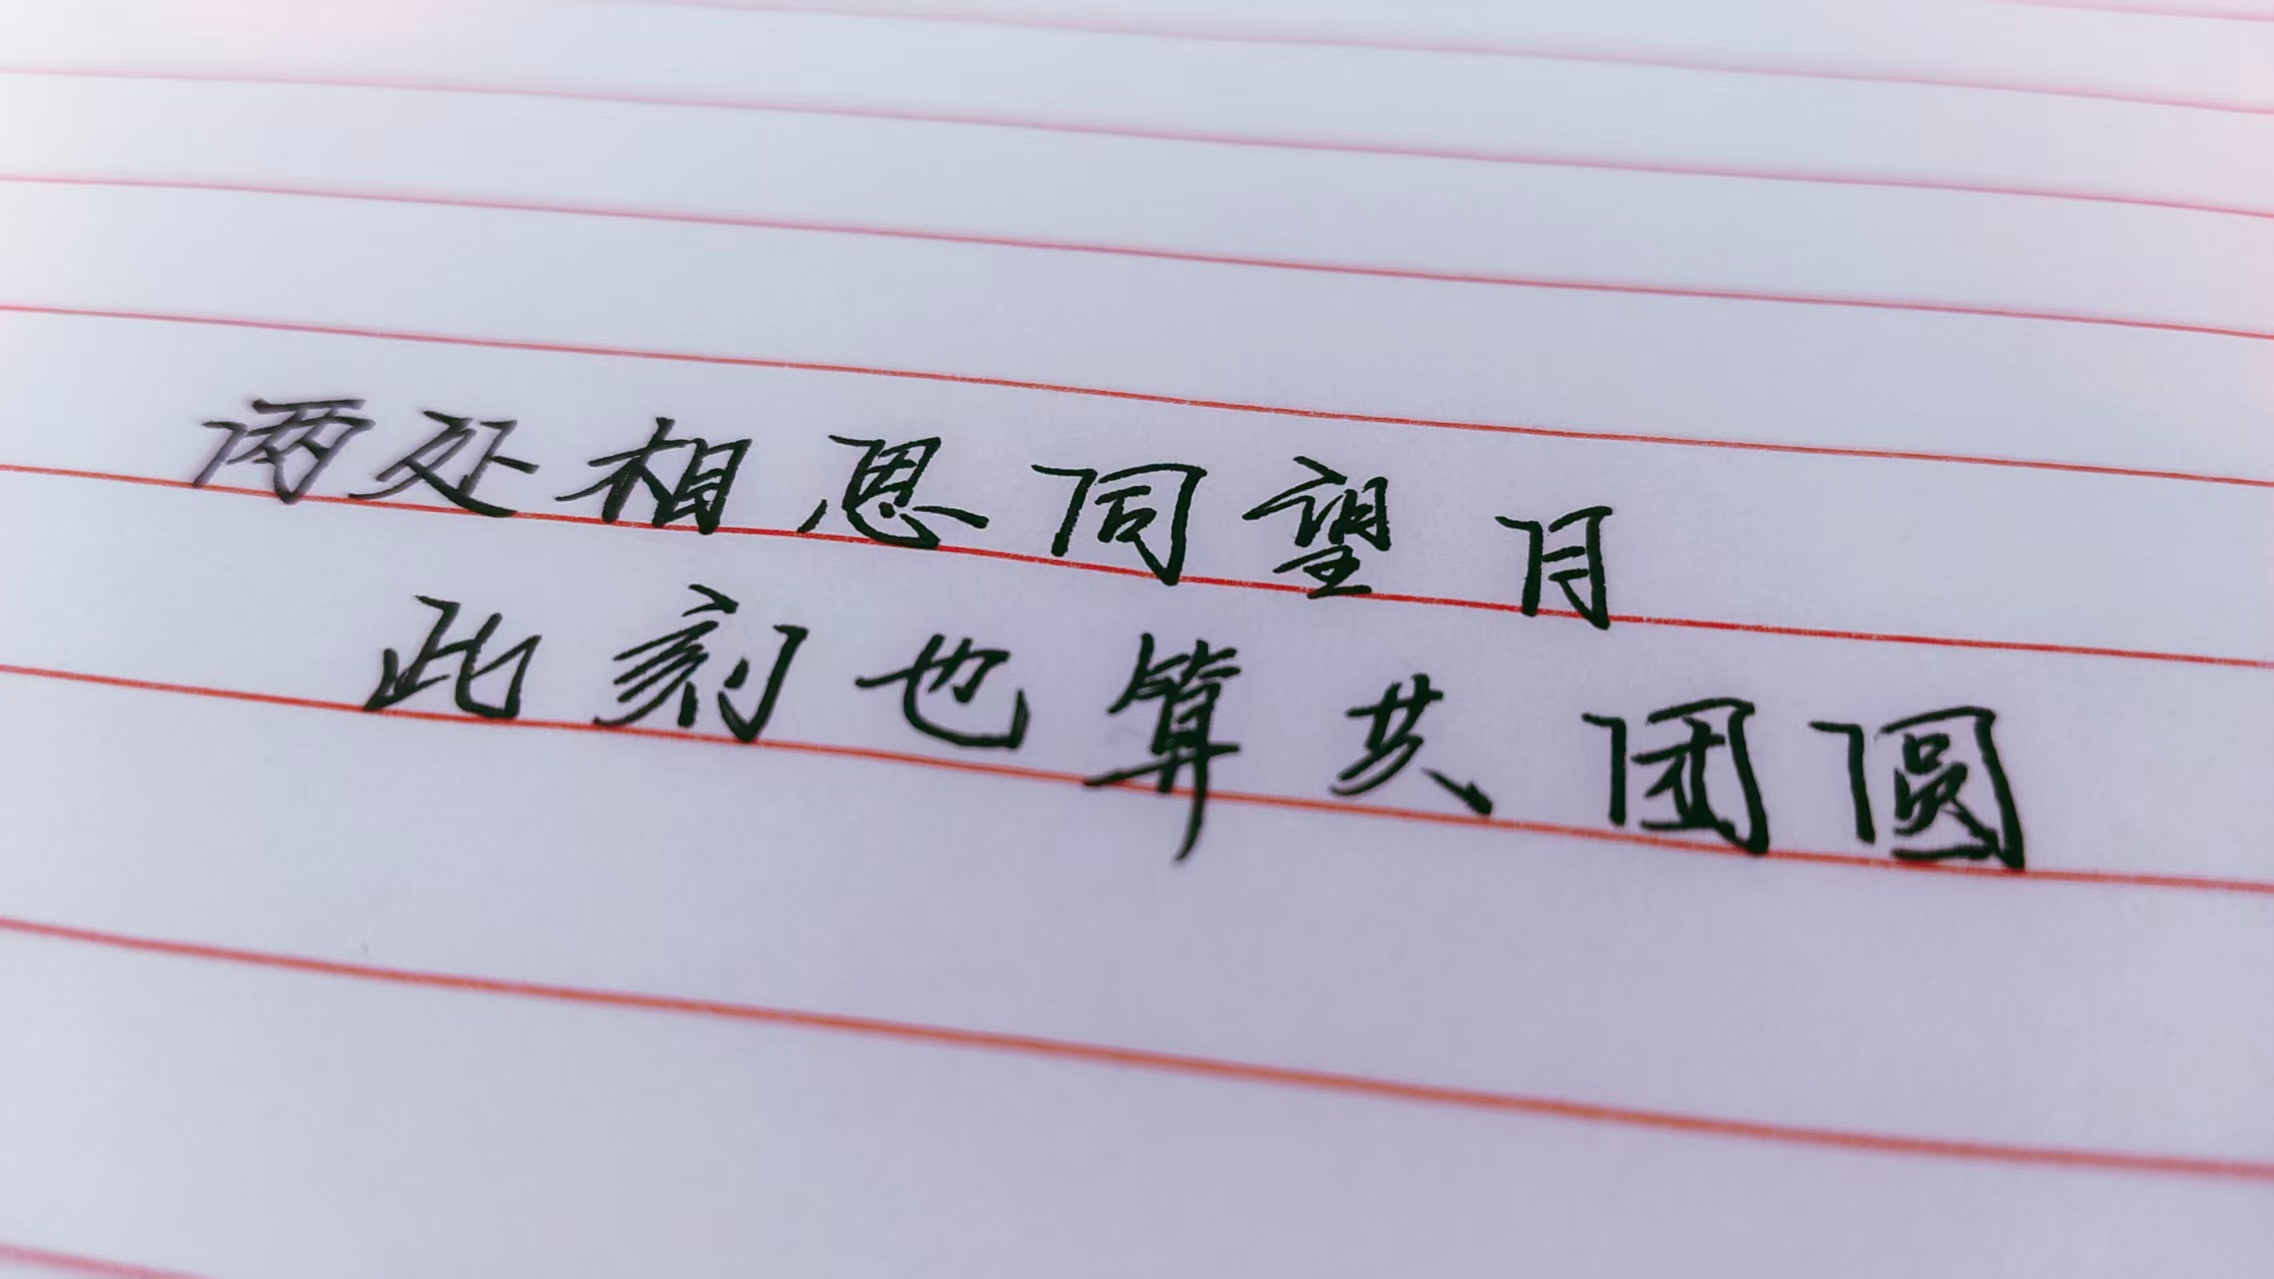 两处相思同望月
此刻也算共团圆